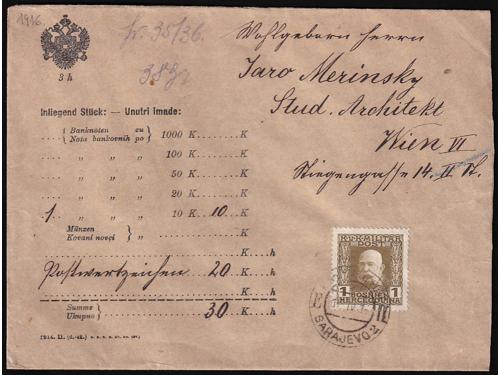 1916.
Nr. 35/36.
3 h
Wohlgeboren Herrn
Jaro Merinsky
Stud. Architekt
Wien VI
Stiegengasse 14. II St.
Inliegend Stück: — Unutri imade:
Banknoten zu
Nota bankovnih po 1000 K K
„ „ „ 100 K K
„ „ „ 50 K K
„ „ „ 20 K K
1 „ „ „ 10 K 10 K
Münzen
Kovani novci K h
K h
Postwertzeichen 20 K h
K h
Summe
Ukupno 30 K h
K.u.K. MILITÄR
POST
1 BOSNIEN 1
HERCEGOVINA
SARAJEVO 2